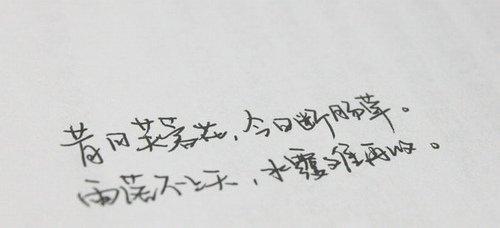 昔日芙蓉花，今日断肠草。
雨落不上天，水覆难再收。